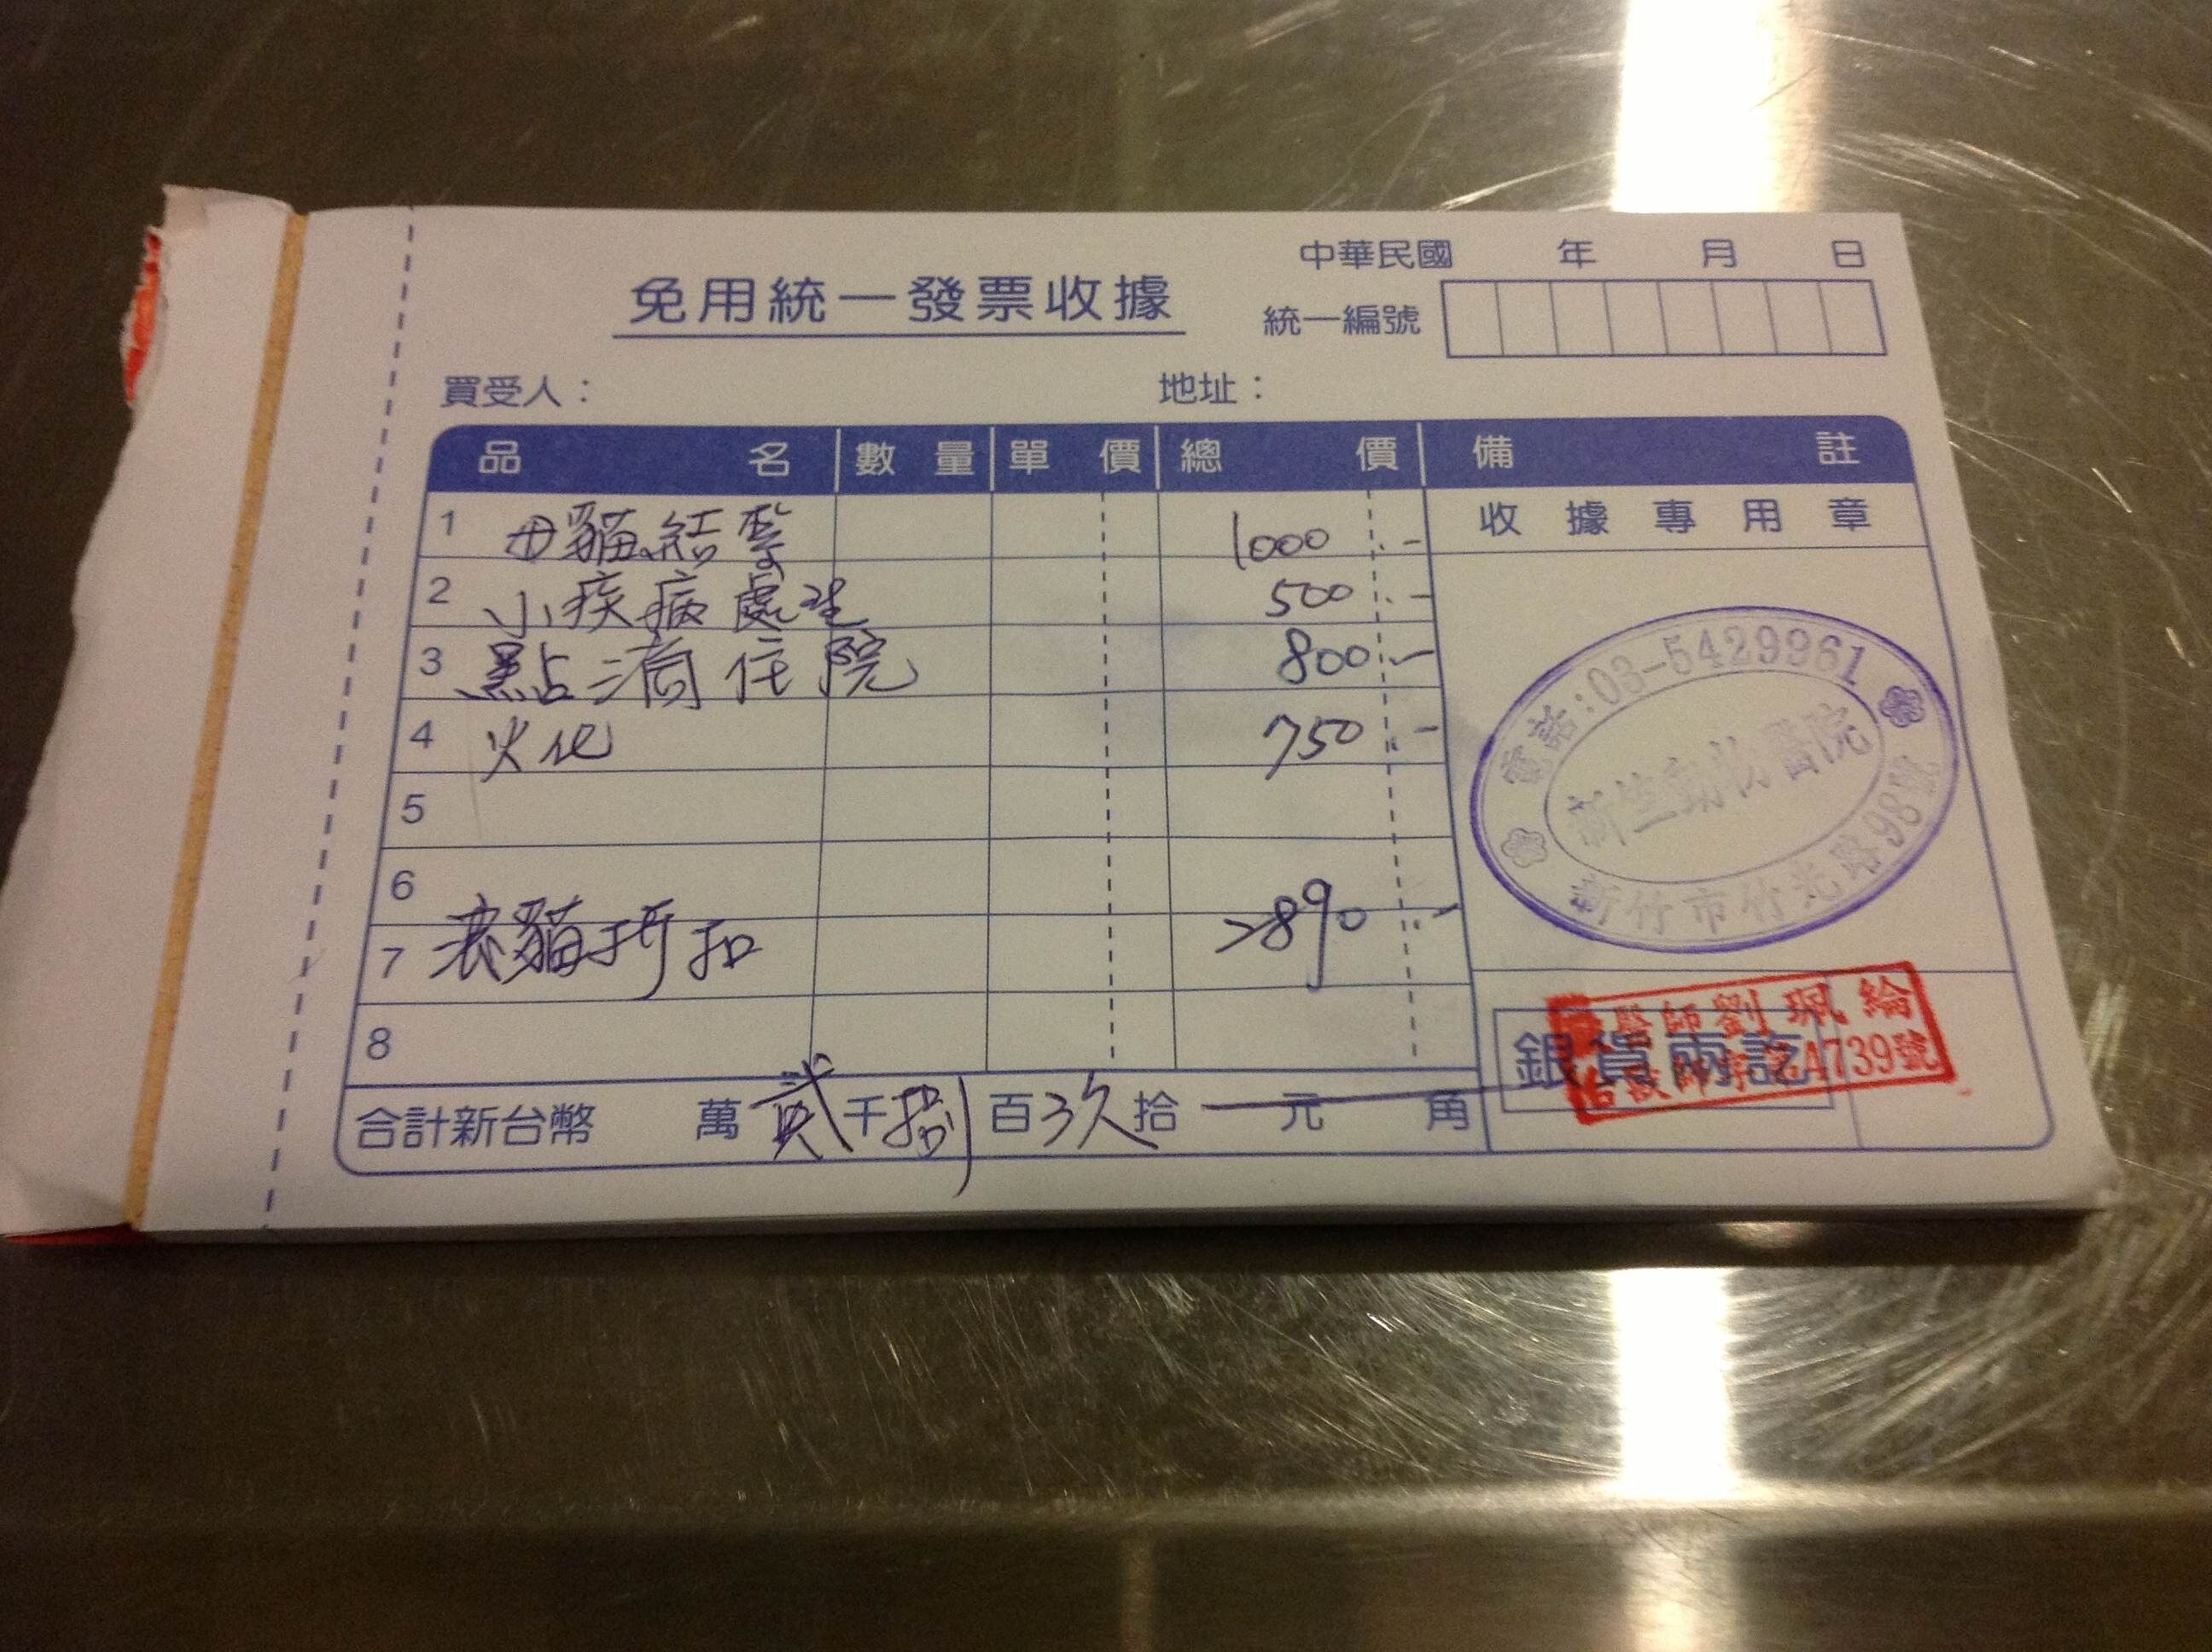 中華民國 年 月 日
免用統一發票收據
統一編號
買受人： 地址：
品名 數量 單價 總價 備註
收據專用章
1 母貓結紮 1000.-
2 小疾病處理 500.-
3 點滴住院 800.-
4 火化 750.-
5
6
7 浪貓折扣 2890.-
8
合計新台幣 萬貳千捌百玖拾 元 角
電話：03-5429961
新生動物醫院
新竹市竹光路98號
銀貨兩訖
醫師劉珮綸
4739號